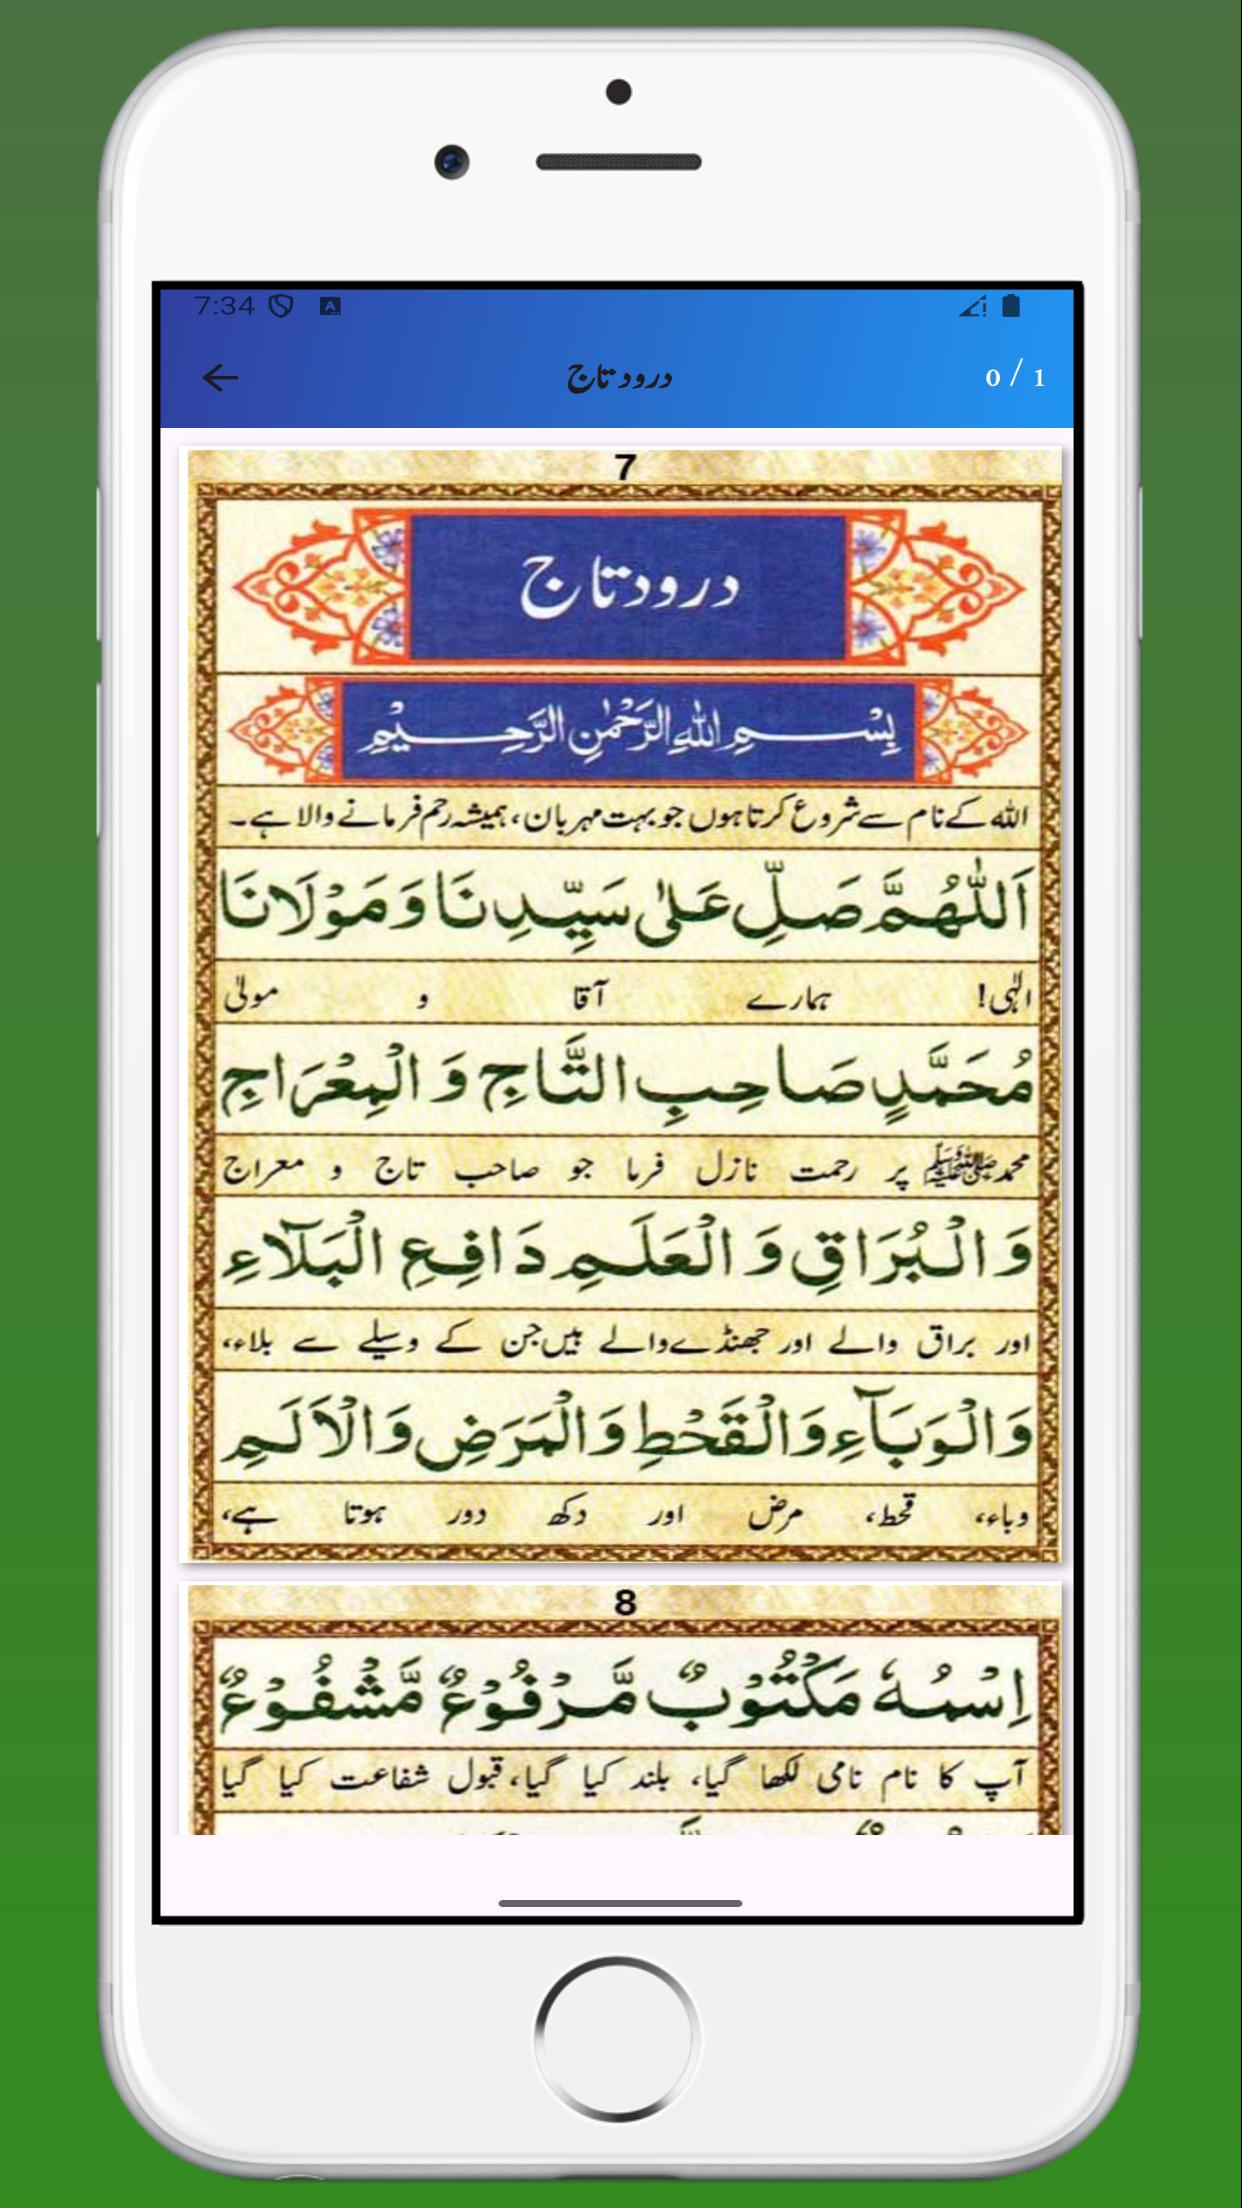 7:34
درود تاج
0 / 1
7
درود تاج
بِسْمِ اللهِ الرَّحْمٰنِ الرَّحِيْمِ
اللہ کے نام سے شروع کرتا ہوں جو بہت مہربان، ہمیشہ رحم فرمانے والا ہے۔
اَللّٰهُمَّ صَلِّ عَلٰى سَيِّدِنَا وَ مَوْلَانَا
الٰہی! ہمارے آقا و مولیٰ
مُحَمَّدٍ صَاحِبِ التَّاجِ وَ الْمِعْرَاجِ
محمد ﷺ پر رحمت نازل فرما جو صاحب تاج و معراج
وَالْبُرَاقِ وَ الْعَلَمِ دَافِعِ الْبَلَآءِ
اور براق والے اور جھنڈے والے ہیں جن کے وسیلے سے بلاء،
وَالْوَبَآءِ وَالْقَحْطِ وَالْمَرَضِ وَالْاَلَمِ
وباء، قحط، مرض اور دکھ دور ہوتا ہے،
8
اِسْمُهٗ مَكْتُوْبٌ مَّرْفُوْعٌ مَّشْفُوْعٌ
آپ کا نام نامی لکھا گیا، بلند کیا گیا، قبول شفاعت کیا گیا